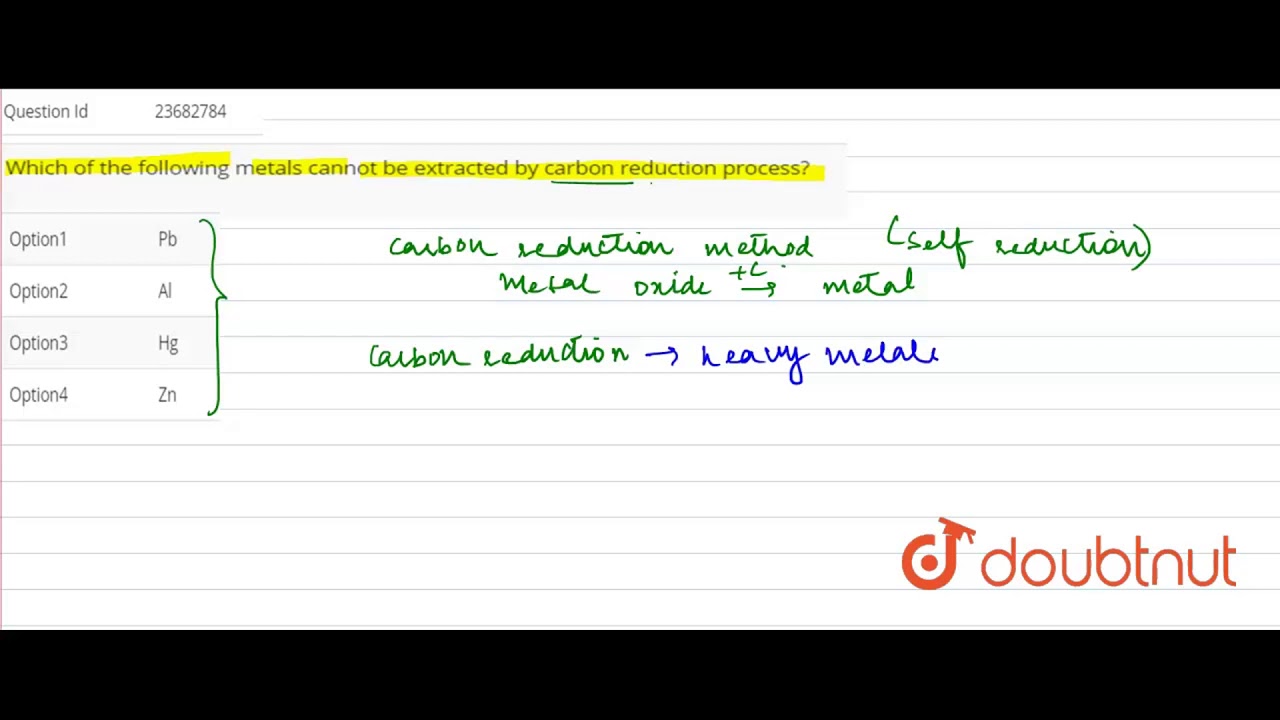 Question Id 23682784
Which of the following metals cannot be extracted by carbon reduction process?
Option1 Pb
Option2 Al
Option3 Hg
Option4 Zn
Carbon reduction method (self reduction)
Metal oxide +C → metal
Carbon reduction → heavy metals
doubtnut